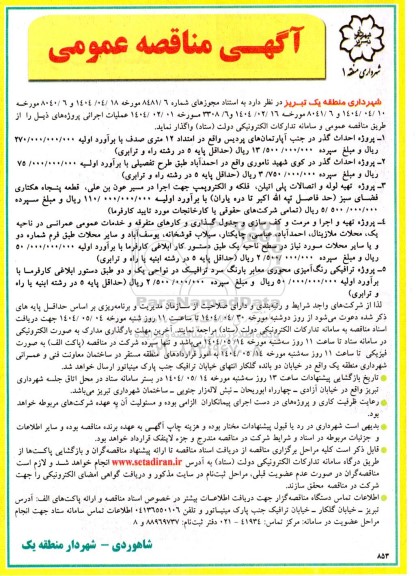 آگهی مناقصه عمومی
شهرداری منطقه ۱
شهرداری منطقه یک تبریز در نظر دارد به استناد مجوزهای شماره ۸۴۸۱/۶ مورخه ۱۴۰۴/۰۴/۱۸ و ۸۰۴۰/۶ مورخه
۱۴۰۴/۰۴/۱۰ و ۸۰۴۱/۶ مورخه ۱۴۰۴/۰۲/۱۶ و ۳۳۰۸/۶ مورخه ۱۴۰۴/۰۲/۰۱ عملیات اجرائی پروژه‌های ذیل را از
طریق مناقصه عمومی و سامانه تدارکات الکترونیکی دولت (ستاد) واگذار نماید.
۱- پروژه احداث گذر در جنب آپارتمان‌های پردیس واقع در امتداد ۱۲ متری صدف با برآورد اولیه ۲۷۰/۰۰۰/۰۰۰/۰۰۰
ریال و مبلغ سپرده ۱۳/۵۰۰/۰۰۰/۰۰۰ ریال (حداقل پایه ۵ در رشته راه و ترابری)
۲- پروژه احداث گذر در کوی شهید ناموری واقع در احمدآباد طبق طرح تفصیلی با برآورد اولیه ۷۵/۰۰۰/۰۰۰/۰۰۰
ریال و مبلغ سپرده ۳/۷۵۰/۰۰۰/۰۰۰ ریال (حداقل پایه ۵ در رشته راه و ترابری)
۳- پروژه تهیه لوله و اتصالات پلی اتیلن، فلکه و الکتروپمپ جهت اجرا در مسیر عون بن علی، قطعه پنجاه هکتاری
فضای سبز (حد فاصل تپه الله اکبر تا دره باران) با برآورد اولیه ۱۱۰/۰۰۰/۰۰۰/۰۰۰ ریال و مبلغ سپرده
۵/۵۰۰/۰۰۰/۰۰۰ ریال (تمامی شرکت‌های حقوقی یا کارخانجات مورد تایید کارفرما)
۴- پروژه تهیه و اجرا و مرمت و کف‌سازی و جدول‌گذاری و کارهای متفرقه و خدمات عمومی عمرانی در ناحیه
یک، محلات ملازینال، احمدآباد، عباسی، چایکنار، سیلاب قوشخانه، یوسف‌آباد و سایر محلات طبق فرم شماره دو
و یا سایر محلات مورد نیاز در سطح ناحیه یک طبق دستور کار ابلاغی کارفرما با برآورد اولیه ۵۰/۰۰۰/۰۰۰/۰۰۰
ریال و مبلغ سپرده ۲/۵۰۰/۰۰۰/۰۰۰ ریال (حداقل پایه ۵ در رشته ابنیه یا راه و ترابری)
۵- پروژه ترافیکی رنگ‌آمیزی محوری معابر بارنگ سرد ترافیک در نواحی یک و دو طبق دستور ابلاغی کارفرما با
برآورد اولیه ۵۱/۰۰۰/۰۰۰/۰۰۰ ریال و مبلغ سپرده ۲/۵۵۰/۰۰۰/۰۰۰ ریال (حداقل پایه ۵ در رشته ابنیه یا راه و
ترابری)
لذا از شرکت‌های واجد شرایط و رتبه‌بندی و دارای صلاحیت از سازمان مدیریت و برنامه‌ریزی بر اساس حداقل پایه های
ذکر شده دعوت می‌شود از روز دوشنبه مورخه ۱۴۰۴/۰۴/۳۰ تا ساعت ۱۱ روز شنبه مورخه ۱۴۰۴/۰۵/۰۴ جهت دریافت
اسناد مناقصه به سامانه تدارکات الکترونیکی دولت (ستاد) مراجعه نمایند. آخرین مهلت بارگذاری مدارک به صورت الکترونیکی
در سامانه ستاد تا ساعت ۱۱ روز سه‌شنبه مورخه ۱۴۰۴/۰۵/۱۴ می‌باشد و تنها سپرده شرکت در مناقصه (پاکت الف) به صورت
فیزیکی تا ساعت ۱۱ روز سه‌شنبه مورخه ۱۴۰۴/۰۵/۱۴ به امور قراردادهای منطقه مستقر در ساختمان معاونت فنی و عمرانی
شهرداری منطقه یک واقع در خیابان دو بانده گلکار انتهای خیابان ترافیک جنب پارک مینیاتور ارسال خواهد شد.
تاریخ بازگشایی پیشنهادات ساعت ۱۳ روز سه‌شنبه مورخه ۱۴۰۴/۰۵/۱۴ در بستر سامانه ستاد در محل اتاق جلسه شهرداری
تبریز واقع در خیابان آزادی - چهارراه ابوریحان - نبش لاله‌زار جنوبی - ساختمان شهرداری تبریز می‌باشد.
رعایت ظرفیت کاری و پروژه‌های در دست اجرای پیمانکاران الزامی بوده و مسئولیت آن به عهده شرکت‌های مربوطه خواهد
بود.
بدیهی است شهرداری در رد یا قبول پیشنهادات مختار بوده و هزینه چاپ آگهی به عهده برنده مناقصه بوده و سایر اطلاعات
و جزئیات مربوطه در اسناد و شرایط شرکت در مناقصه مندرج و جزء لاینفک قرارداد خواهد بود.
قابل ذکر است کلیه مراحل برگزاری مناقصه از دریافت اسناد مناقصه تا ارائه پیشنهاد مناقصه‌گران و بازگشایی پاکت‌ها از
طریق درگاه سامانه تدارکات الکترونیکی دولت (ستاد) به آدرس www.setadiran.ir انجام خواهد شد و لازم است
مناقصه‌گران در صورت عدم عضویت قبلی، مراحل ثبت‌نام در سایت مذکور و دریافت گواهی امضای الکترونیکی را جهت
شرکت در مناقصه محقق سازند.
اطلاعات تماس دستگاه مناقصه‌گزار جهت دریافت اطلاعات بیشتر در خصوص اسناد مناقصه و ارائه پاکت‌های الف: آدرس
تبریز - خیابان گلکار - خیابان ترافیک جنب پارک مینیاتور و تلفن ۰۴۱۳۶۵۵۰۱۰۶ اطلاعات تماس سامانه ستاد جهت انجام
مراحل عضویت در سامانه: مرکز تماس: ۴۱۹۳۴ - ۰۲۱ دفتر ثبت‌نام: ۸۸۹۶۹۷۳۷ و ۸
شاهوردی - شهردار منطقه یک
۸۵۳